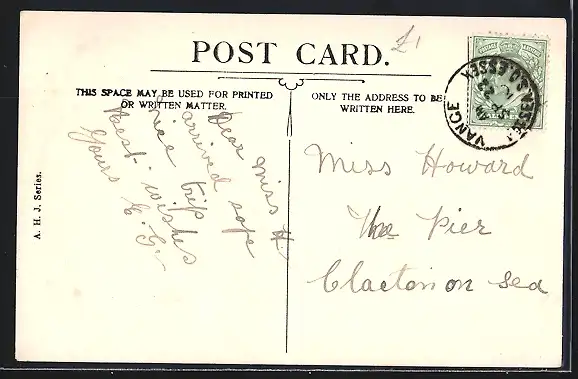 £1
POST CARD.
THIS SPACE MAY BE USED FOR PRINTED
OR WRITTEN MATTER.
ONLY THE ADDRESS TO BE
WRITTEN HERE.
Dear Miss H
arrived safe
nice trip
Best wishes
Yours E. G
Miss Howard
The Pier
Clacton on Sea
A. H. J. Series.
VANGE
S.O. ESSEX